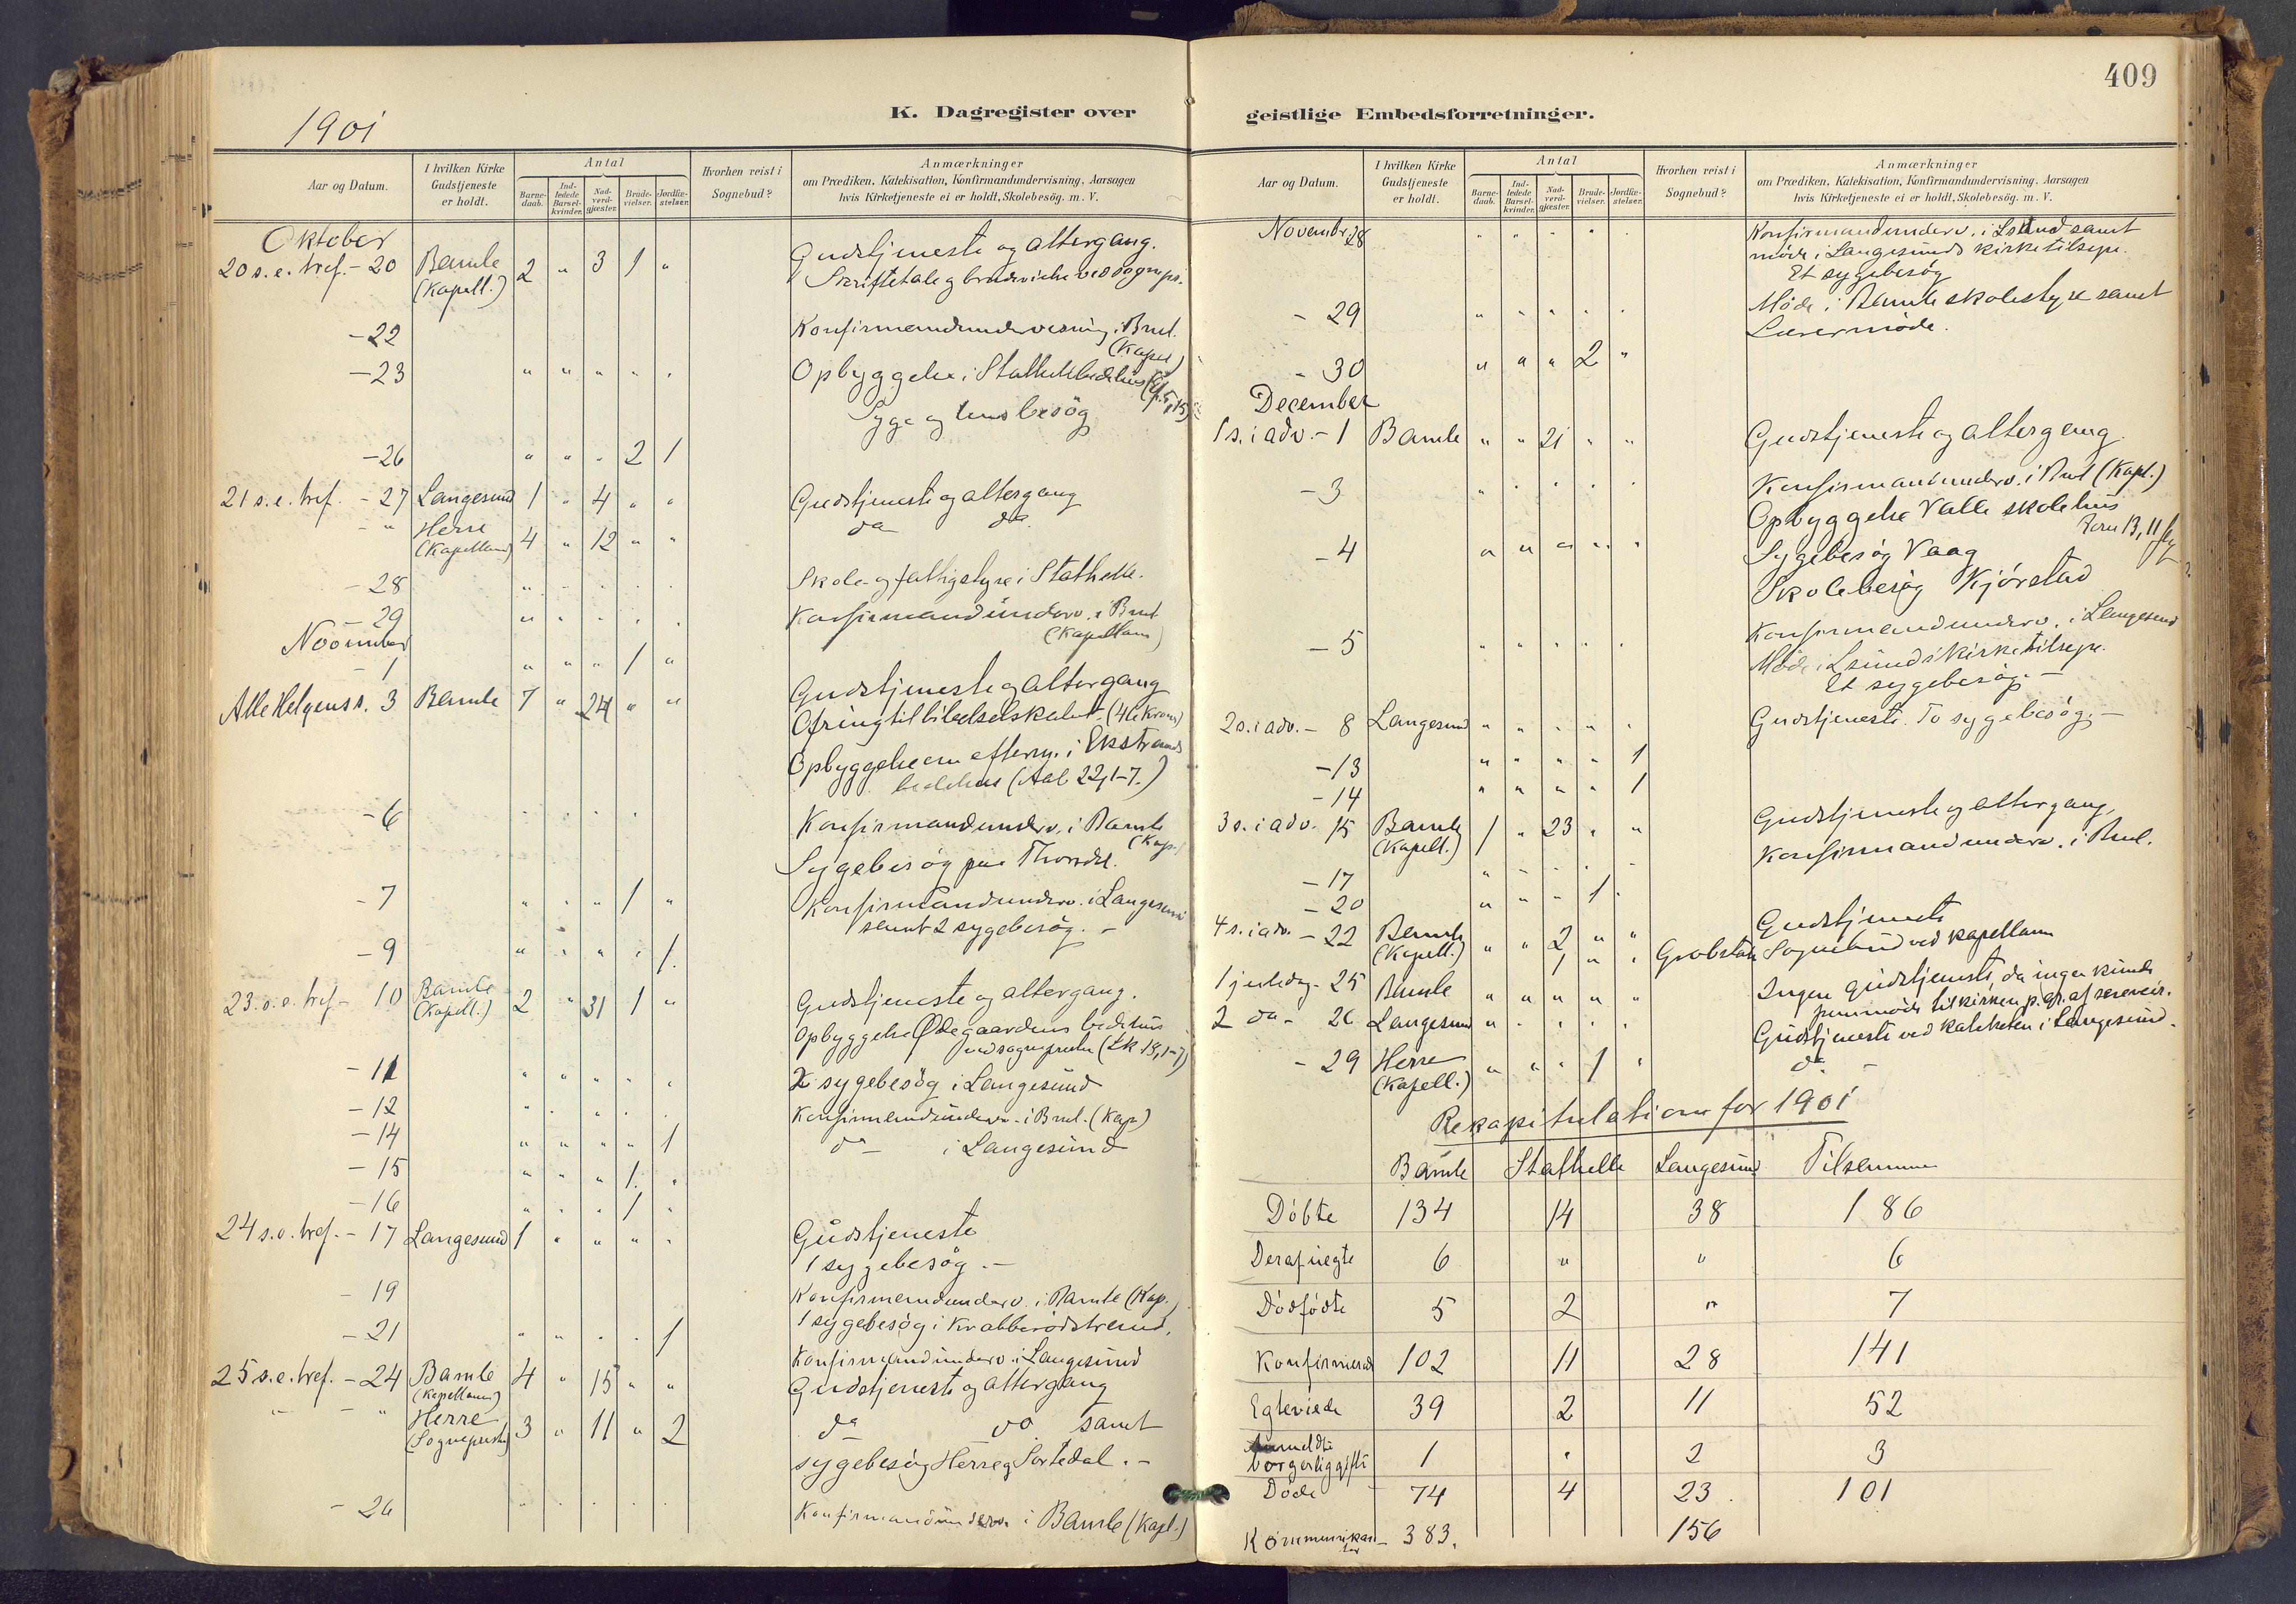 409
1901
K. Dagregister over geistlige Embedsforretninger.
Aar og Datum.
I hvilken Kirke Gudstjeneste er holdt.
Antal
Barnedaab.
Indledede Barselkvinder.
Nadverdgjæster.
Brudevielser.
Jordfæstelser.
Hvorhen reist i Sognebud?
Anmærkninger
om Prædiken, Katekisation, Konfirmandundervisning, Aarsagen
hvis Kirketjeneste ei er holdt, Skolebesög. m. V.
Oktober
20 s. e. tref. - 20 Bamle 2 " 3 1 " Gudstjeneste og altergang.
(Kapell.) Skriftetale og brudevielse ved sognepr.
- 22 Konfirmandundervisning i Bml.
(Kapel)
- 23 " " " " " Opbyggelse i Stathelle bedehus
Syge og husbesög
- 26 " " " 2 1
21 s. e. tref. - 27 Langesund 1 " 4 " " Gudstjeneste og altergang
- " Herre 4 " 12 " " do do
(Kapellan)
- 28 " " " " " Skole- og fattigstyre i Stathelle.
- 29 " " " " " Konfirmandunderv. i Bml
(Kapellan)
November
- 1 " " " 1 "
Alle Helgens s. 3 Bamle 7 " 24 " " Gudstjeneste og altergang
Ofring til bibelselskabet.
Opbyggelse om efterm. i Ekstrands
bedehus (Aab 22,1-7.)
- 6 " " " " " Konfirmandunderv. i Bamle
(Kap.)
Sygebesög
- 7 " " " 1 " Konfirmandunderv. i Langesund
samt 2 sygebesög. -
- 9 " " " " 1.
23. s. e. tref - 10 Bamle 2 " 31 1 " Gudstjeneste og altergang.
(Kapell.)
Opbyggelse Ødegaardens bedehus
ved sognepresten (Lk 18,1-7)
- 11 " " " " " sygebesög i Langesund
- 12 " " " " " Konfirmandunderv. i Bml. (Kap)
- 14 " " " " 1 do - i Langesund
- 15 " " " 1. "
- 16 " " " 1 "
24 s. e. tref. - 17 Langesund 1 " " " " Gudstjeneste
1 sygebesög. -
- 19 Konfirmandunderv. i Bamle (Kap.)
1 sygebesög i Krabberödstrand.
- 21 " " " " 1
Konfirmandunderv. i Langesund
25 s. e. tref. - 24 Bamle 4 " 15 " " Gudstjeneste og altergang
(Kapellanen)
" - " Herre 3 " 11 " 2 do do samt
(Sognepresten)
sygebesög Herre og Sortedal. -
- 26 " " " " " Konfirmandunderv. i Bamle (Kapl.)
Aar og Datum.
I hvilken Kirke Gudstjeneste er holdt.
Antal
Barnedaab.
Indledede Barselkvinder.
Nadverdgjæster.
Brudevielser.
Jordfæstelser.
Hvorhen reist i Sognebud?
Anmærkninger
om Prædiken, Katekisation, Konfirmandundervisning, Aarsagen
hvis Kirketjeneste ei er holdt, Skolebesög. m. V.
November 28 " " " " " Konfirmandunderv. i Lsund samt
möde i Langesunds kirketilsyn.
Et sygebesög
- 29 " " " " " Möde i Bamle skolestyre samt
Lærermöde.
- 30 " " " 2 "
December
1 s. i adv. - 1 Bamle " " 21 " " Gudstjeneste og altergang.
- 3 " " " " " Konfirmandunderv. i Bml (Kapl.)
Opbyggelse Valle skolehus
- 4 " " " " " Sygebesög Vaag
Skolebesög Kjörstad
- 5 " " " " " Konfirmandunderv. i Langesund
Möde i Lsunds kirketilsyn.
Et sygebesög. -
2 s. i adv. - 8 Langesund " " " " " Gudstjeneste. To sygebesög. -
- 13 " " " " 1
- 14 " " " " 1
3 s. i adv. 15 Bamle 1 " 23 " " Gudstjeneste og altergang,
(Kapell.)
- 17 " " " " " Konfirmandunderv. i Bml.
- 20 " " " 1 "
4 s. i adv. - 22 Bamle " " 2 " " Gudstjeneste
(Kapell.) 1 " " Grobstok Sognebud ved kapellanen
1 juledag - 25 Bamle " " " " " Ingen gudstjeneste, da ingen kunde
fremmöde til kirken p. gr. af
2 do - 26 Langesund " " " " " Gudstjeneste ved kateketen i Langesund.
- 29 Herre " " " 1 " do -
(Kapell.)
Rekapitulation for 1901
Bamle Stathelle Langesund Tilsammen
Döbte 134 14 38 186
Deraf uegte 6 " " 6
Dödfödte 5 2 " 7
Konfirmerede 102 11 28 141
Egteviede 39 2 11 52
Anmeldte
borgerlig gifte 1 " 2 3
Döde 74 4 23. 101
Kommunikanter - 383. 156